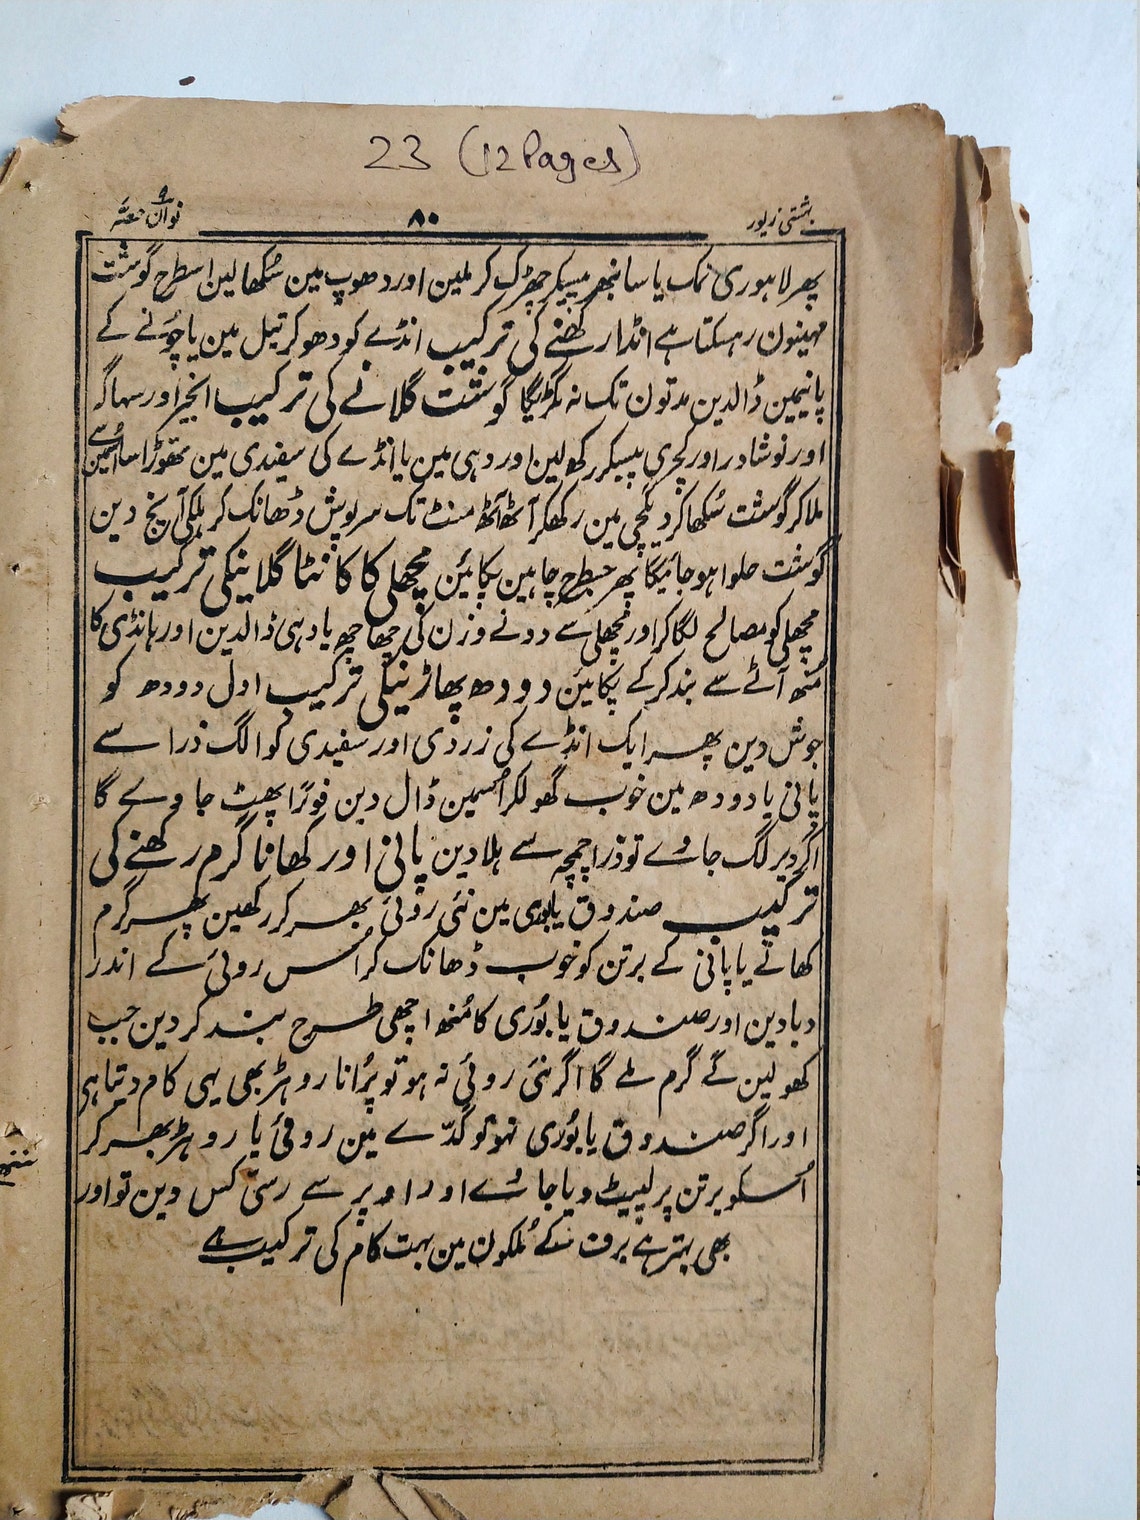 23 (12 Pages)
بہشتی زیور
۸۰
نواں ۹ حصّہ
پھر لاہوری نمک یا سانبھر پیسکر چھڑک کر ملین اور دھوپ مین سُکھا لین اسطرح گوشت
مہینون رہ سکتا ہے انڈا رکھنے کی ترکیب انڈے کو دھو کر تیل مین یا چونے کے
پانیمین ڈالدین مدتون تک نہ بگڑیگا گوشت گلانے کی ترکیب انجیر اور سہاگہ
اور نوشادر اور کچری پیسکر رکھ لین اور دہی مین یا انڈے کی سفیدی مین تھوڑا سا اُسمین سے
ملا کر گوشت سُکھا کر دیگچی مین رکھکر آٹھ آٹھ منٹ تک سرپوش ڈھانک کر ہلکی آنچ دین
گوشت حلوا ہو جائیگا پھر جسطرح چاہین پکائین مچھلی کا کانٹا گلانیکی ترکیب
مچھلی کو مصالح لگا کر اور مچھلی سے دونے وزن کی چھاچھ یا دہی ڈالدین اور ہانڈی کا
مُنھ آٹے سے بند کر کے پکائین دودھ پھاڑنیکی ترکیب اول دودھ کو
جوش دین پھر ایک انڈے کی زردی اور سفیدی کو الگ ذرا سے
پانی یا دودھ مین خوب گھولکر اُسمین ڈال دین فورًا پھٹ جاوے گا
اگر دیر لگ جاوے تو ذرا چمچہ سے ہلا دین پانی اور کھانا گرم رکھنے کی
ترکیب صندوق یا بوری مین نئی روئی بھر کر رکھین پھر گرم
کھانے یا پانی کے برتن کو خوب ڈھانک کر اُس روئی کے اندر
دبا دین اور صندوق یا بُوری کا مُنھ اچھی طرح بند کر دین جب
کھولین گے گرم ملے گا اگر نئی روئی نہ ہو تو پُرانا روہڑ بھی یہی کام دیتا ہی
اور اگر صندوق یا بُوری نہو تو گدّے مین روئی یا روہڑ بھر کر
اُسکو برتن پر لپیٹ دیا جائے اور اوپر سے رسّی کس دین تو اور
بھی بہتر ہے برف کے مُلکون مین بہت کام کی ترکیب ہے